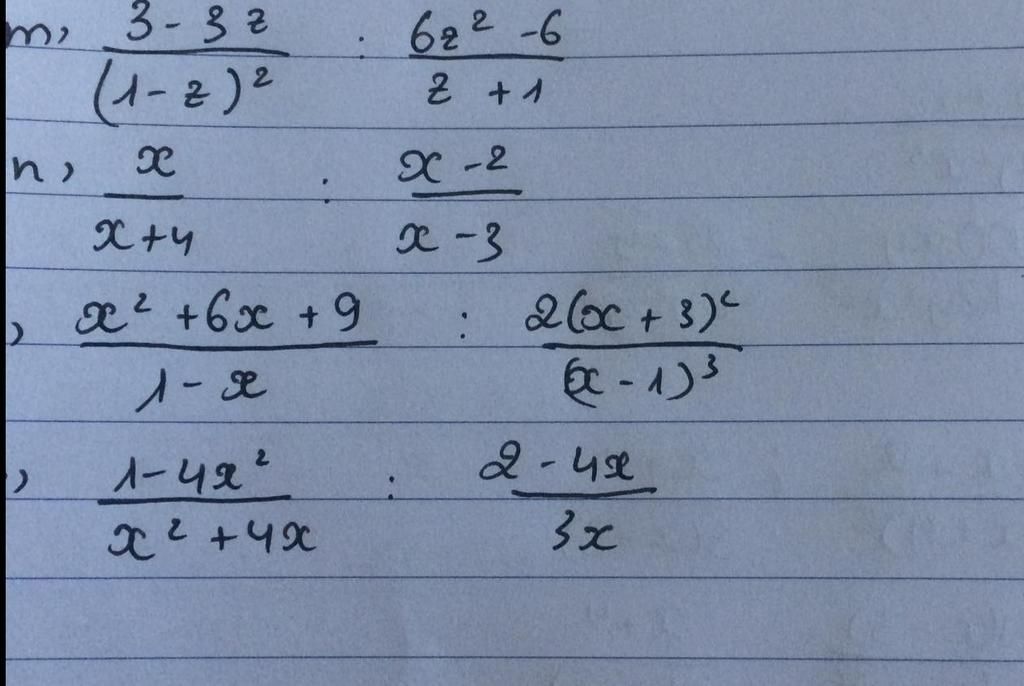 m, 3 - 3z / (1-z)² : 6z² - 6 / z + 1
n, x / x+4 : x - 2 / x - 3
, x² + 6x + 9 / 1 - x : 2(x + 3)² / (x - 1)³
, 1 - 4x² / x² + 4x : 2 - 4x / 3x